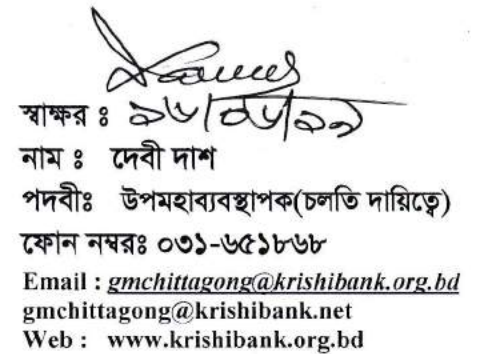 স্বাক্ষর ঃ ১৬/০৬/১৯
নাম ঃ দেবী দাশ
পদবীঃ উপমহাব্যবস্থাপক(চলতি দায়িত্বে)
ফোন নম্বরঃ ০৩১-৬৫১৮৬৮
Email : gmchittagong@krishibank.org.bd
gmchittagong@krishibank.net
Web : www.krishibank.org.bd